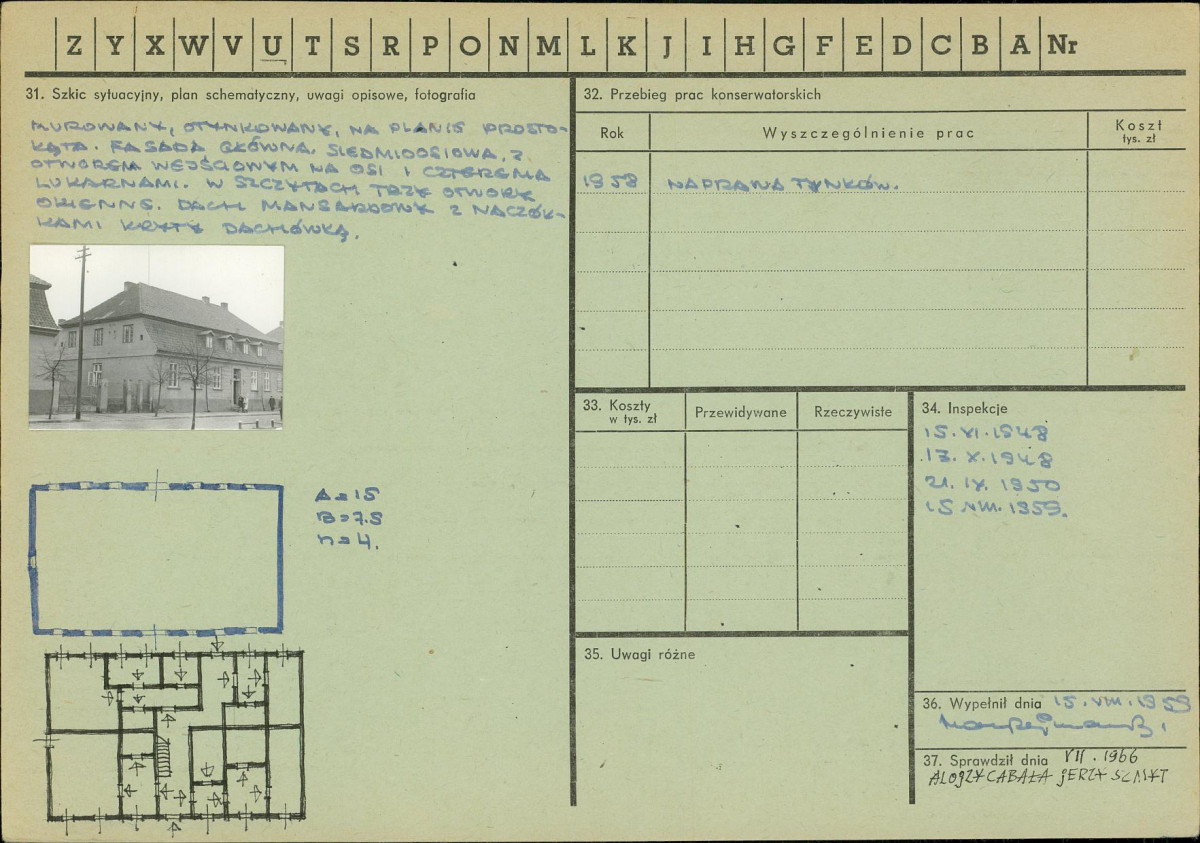 Z Y X W V U T S R P O N M L K J I H G F E D C B A Nr
31. Szkic sytuacyjny, plan schematyczny, uwagi opisowe, fotografia
MUROWANY, OTYNKOWANY, NA PLANIE PROSTO-
KĄTA. FASADA GŁÓWNA SIEDMIOOSIOWA, Z
OTWOREM WEJŚCIOWYM NA OSI I CZTEREMA
LUKARNAMI. W SZCZYTACH TRZY OTWORY
OKIENNE. DACH MANSARDOWY Z NACZÓŁ-
KAMI KRYTY DACHÓWKĄ.
A=15
B=7.5
n=4.
32. Przebieg prac konserwatorskich
Rok
Wyszczególnienie prac
Koszt
tys. zł
1958 NAPRAWA TYNKÓW.
33. Koszty
w tys. zł
Przewidywane
Rzeczywiste
34. Inspekcje
15.XI.1948
13.X.1948
21.IX.1950
15.VIII.1959.
35. Uwagi różne
36. Wypełnił dnia 15.VIII.1959
37. Sprawdził dnia VII.1966
ALOJZY CABAŁA JERZY